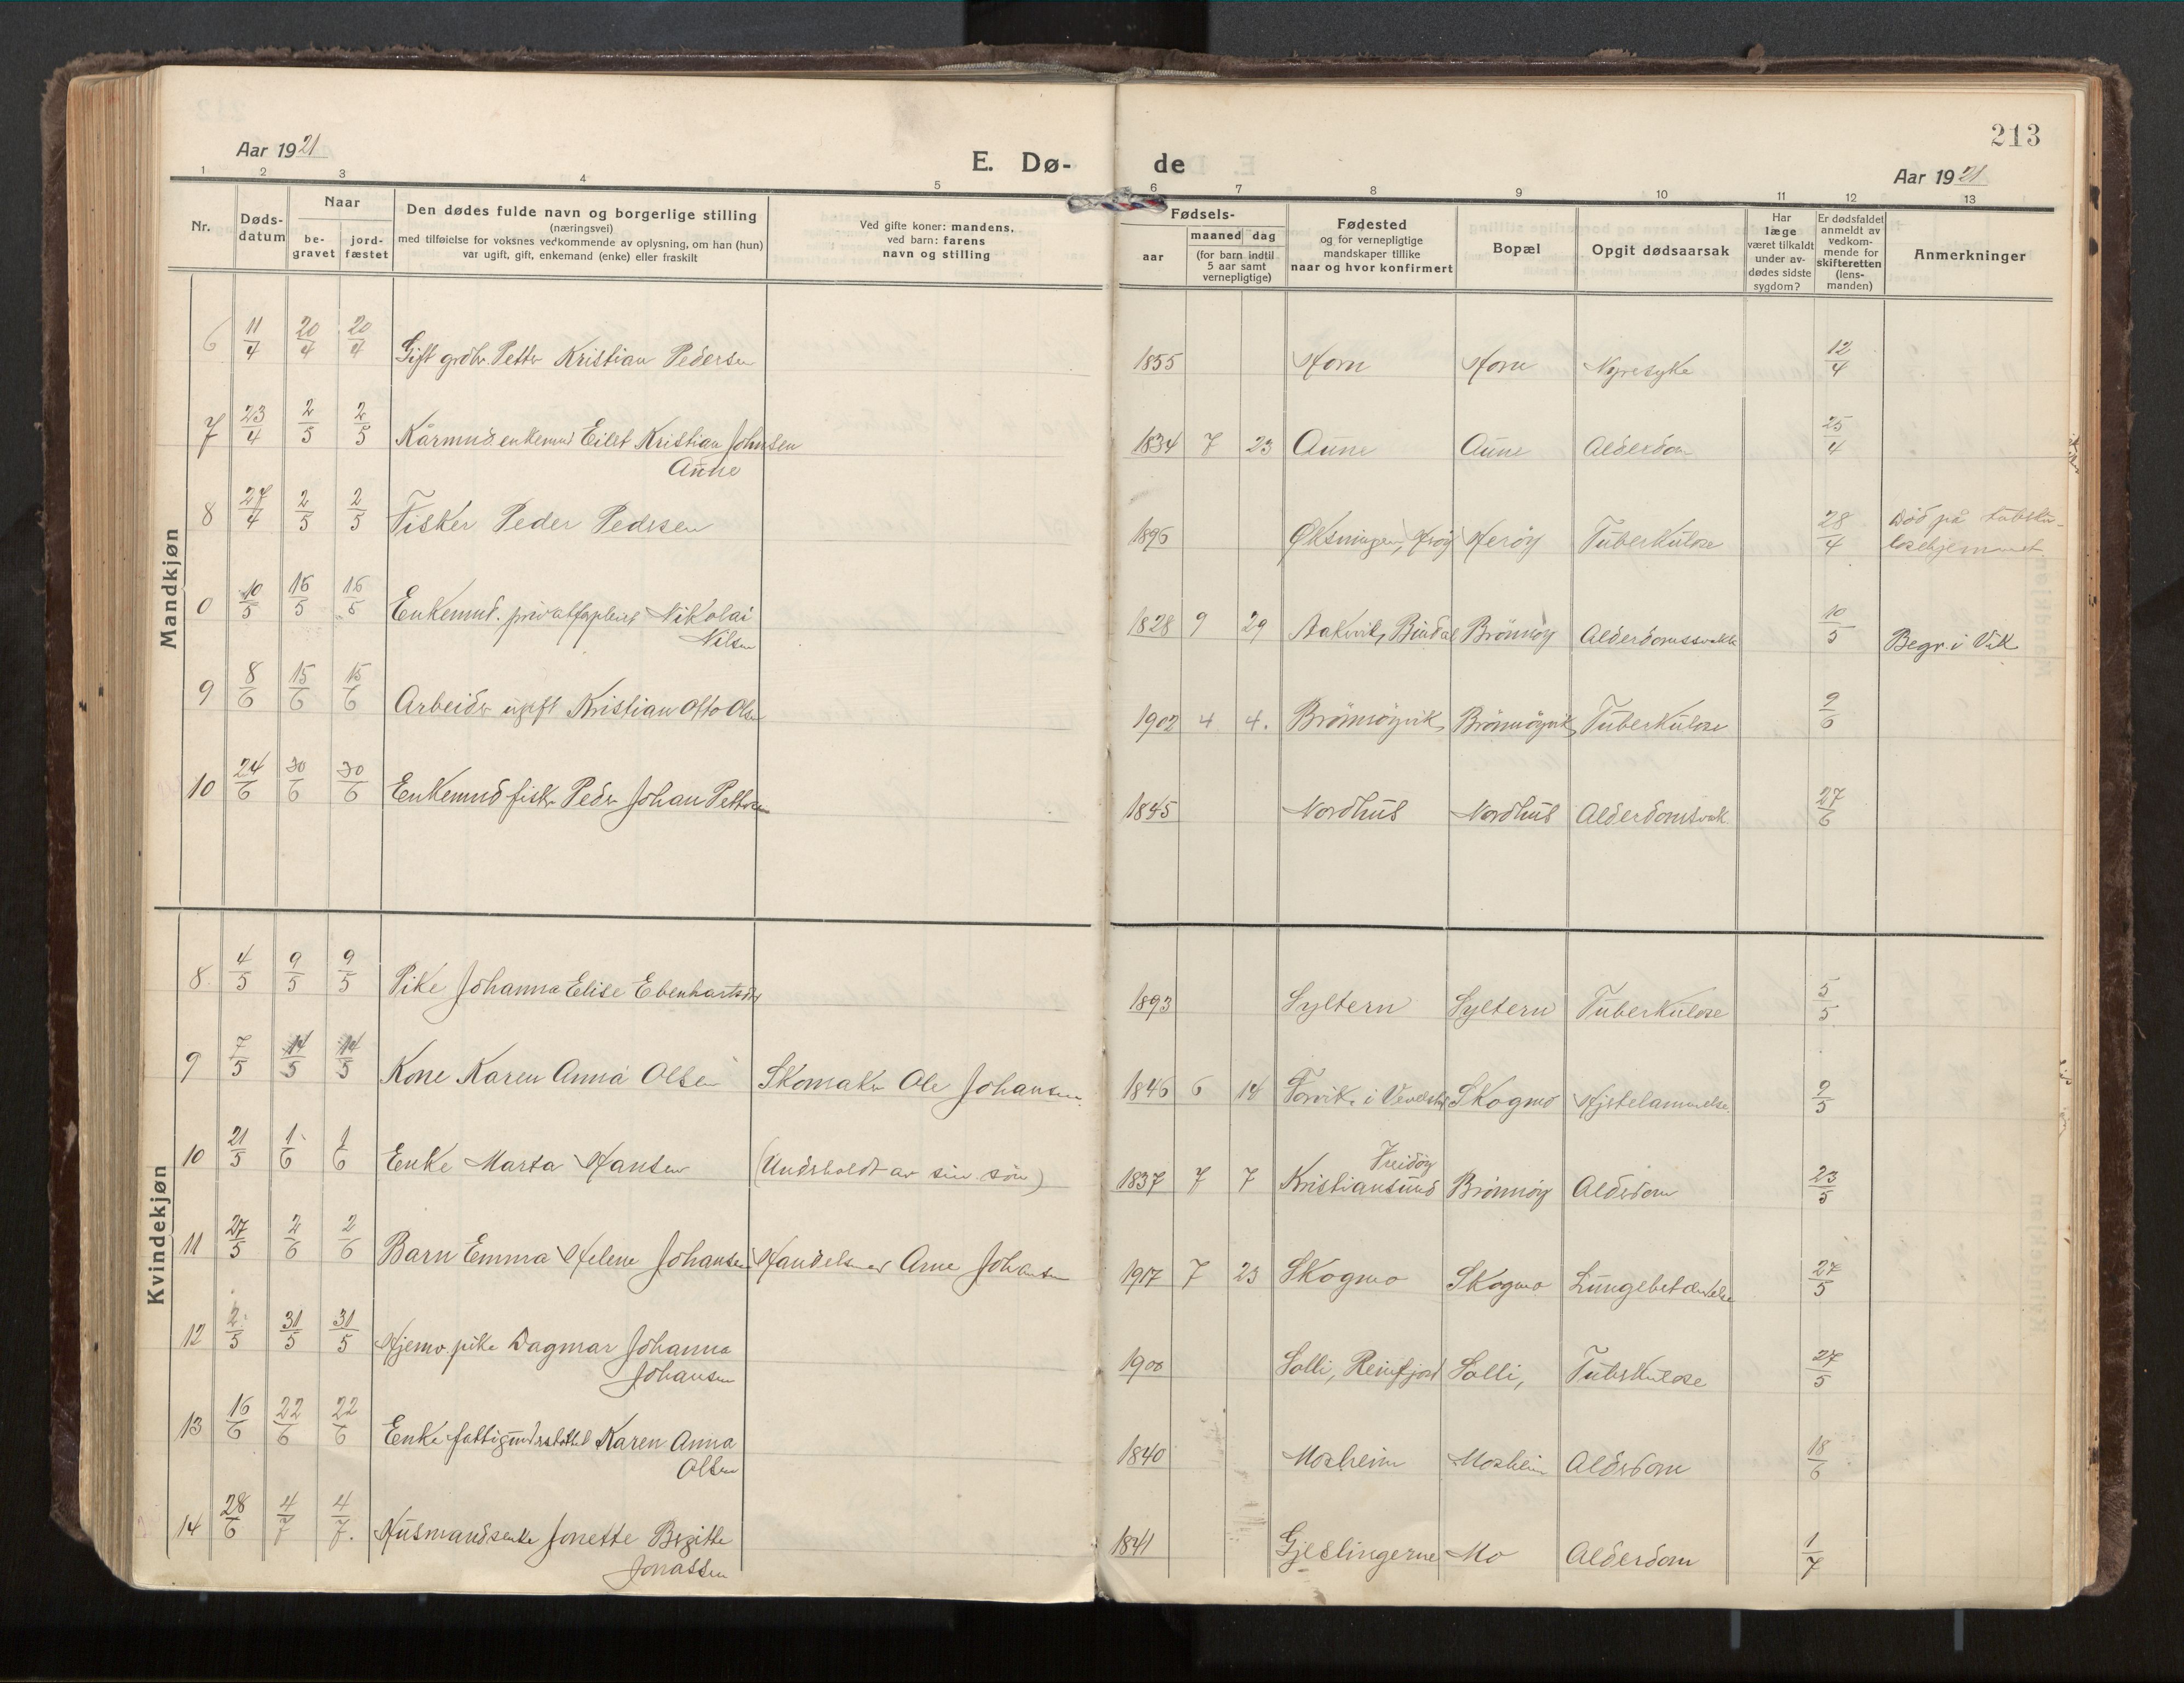 213
Aar 1921
E. Dø-
de
Aar 1921
1 2 3 4 5 6 7 8 9 10 11 12 13
Nr.
Døds-
datum
Naar
be-
gravet
jord-
fæstet
Den dødes fulde navn og borgerlige stilling
(næringsvei)
med tilføielse for voksnes vedkommende av oplysning, om han (hun)
var ugift, gift, enkemand (enke) eller fraskilt
Ved gifte koner: mandens,
ved barn: farens
navn og stilling
Fødsels-
aar
maaned dag
(for barn indtil
5 aar samt
vernepligtige)
Fødested
og for vernepligtige
mandskaper tillike
naar og hvor konfirmert
Bopæl
Opgit dødsaarsak
Har
læge
været tilkaldt
under av-
dødes sidste
sygdom?
Er dødsfaldet
anmeldt av
vedkom-
mende for
skifteretten
(lens-
manden)
Anmerkninger
Mandkjøn
6 11/4 20/4 20/4 Gift grdbr. Petter Kristian Pedersen 1855 Horn Horn Nyresyke 12/4
7 23/4 2/5 2/5 Kårmnd. enkemnd Eilert Kristian Johnsen 1834 7 23 Aune Aune Alderdom 25/4
Aune
8 27/4 2/5 2/5 Fisker Peder Pedersen 1896 Øksningen, Herøy Herøy Tuberkulose 28/4 Død på tuberku-
losehjemmet.
0 10/5 15/5 15/5 Enkemnd. privatforpleiet Nikolai 1828 9 29 Aakvik, Bindal Brønnøy Alderdomssvakh 10/5 Begr. i Vik
Nilsen
9 8/6 15/6 15/6 Arbeider ugift Kristian Otto Olsen 1902 4 4. Brønnøyvik Brønnøyvik Tuberkulose 9/6
10 24/6 30/6 30/6 Enkemnd fisker Peder Johan Pettersen 1845 Nordhus Nordhus Alderdomsvak. 27/6
Kvindekjøn
8. 4/5 9/5 9/5 Pike Johanna Elise Ebenhartsdtr 1893 Syltern Syltern Tuberkulose 5/5
9 7/5 14/5 14/5 Kone Karen Anna Olsen Skomaker Ole Johansen. 1846 6 14 Forvik i Vevelstad Skogmo Hjertelammelse. 9/5
10 21/5 1/6 1/6 Enke Marta Hansen (Underholdt av sin søn) 1837 7 7 Freidøy
Kristiansund Brønnøy Alderdom 23/5
11 27/5 2/6 2/6 Barn Emma Helene Johansen Handelsmer Arne Johansen 1917 7 23 Skogmo Skogmo Lungebetændelse 27/5
12 2/5 31/5 31/5 Hjemv. pike Dagmar Johanna 1900 Solli, Reinfjord Solli, Tuberkulose 27/5
Johansen
13 16/6 22/6 22/6 Enke fattigunderstøttet Karen Anna 1840 Mosheim Mosheim Alderdom 18/6
Olsen
14 28/6 4/7 4/7. Husmandsenke Jonette Bergitte 1841 Gjeslingerne Mo Alderdom 1/7
Jonassen